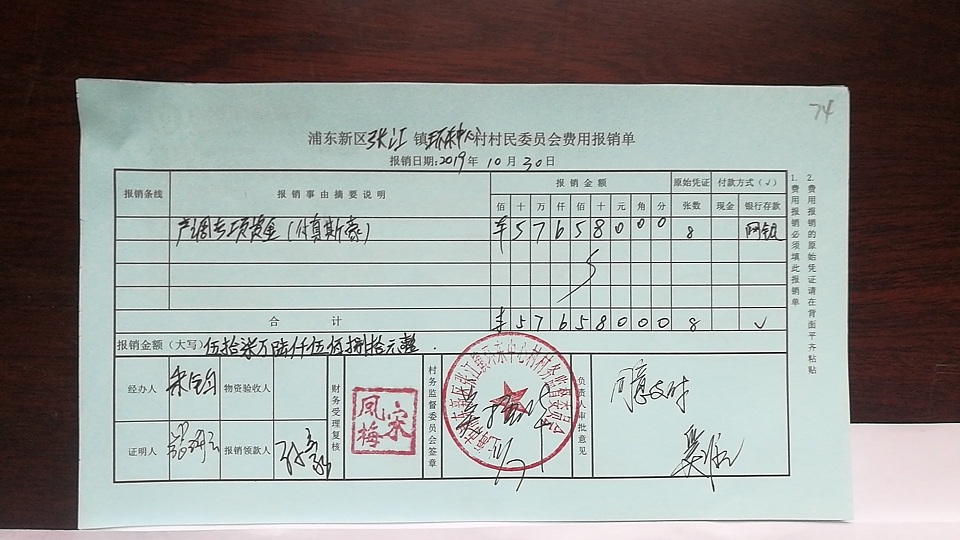 74
浦东新区张江镇环东中心村村民委员会费用报销单
报销日期:2019年10月30日
报销条线 报销事由摘要说明 报销金额 原始凭证 付款方式(√)
佰 十 万 仟 佰 十 元 角 分 张数 现金 银行存款
产调专项资金 ¥ 5 7 6 5 8 0 0 0 8 网银
合计 ¥ 5 7 6 5 8 0 0 0 8 √
报销金额(大写)伍拾柒万陆仟伍佰捌拾元整.
经办人 物资验收人 财务受理复核 宋凤梅 村务监督委员会签章 负责人审批意见 同意支付
证明人 报销领款人
张江镇环东中心村村务监督委员会
1.费用报销必须填此报销单
2.费用报销的原始凭证请在背面平齐粘贴